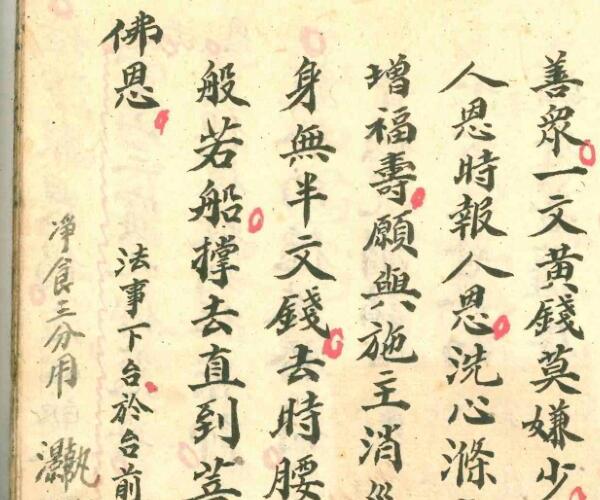 善眾一文黃錢莫嫌少
人恩時報人恩洗心滌
增福壽願與施主消災
身無半文錢去時腰
般若船撑去直到
佛恩
法事下台於台前
净食三分用